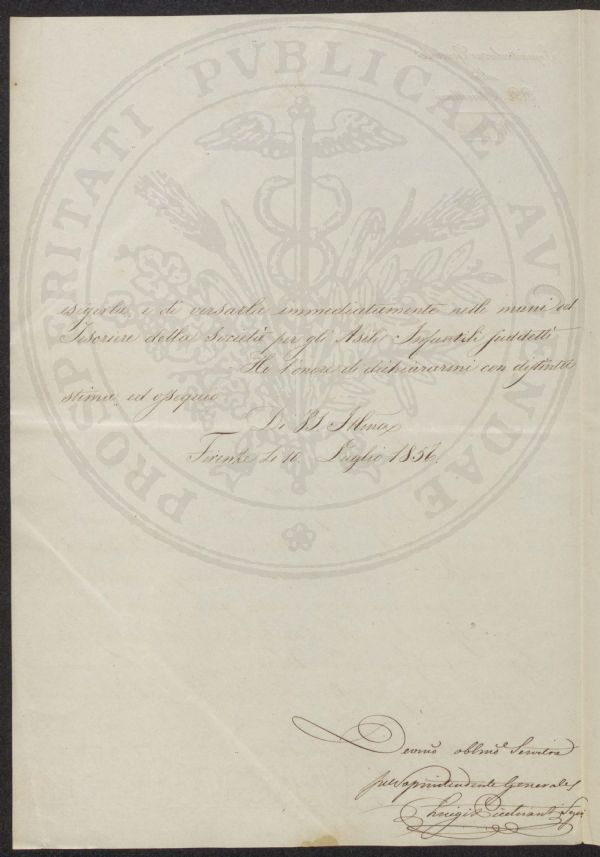 PROSPERITATI PVBLICAE AVGENDAE
esigerla, e di versarla immediatamente nelle mani del
Tesoriere della Società per gli Asili Infantili suddetti
Ho l'onore di dichiararmi con distinta
stima ed ossequio
Di VS. Illma
Firenze Li 16. Luglio 1856.
Devmo obblmo Servitore
Soprintendente Generale
Luigi